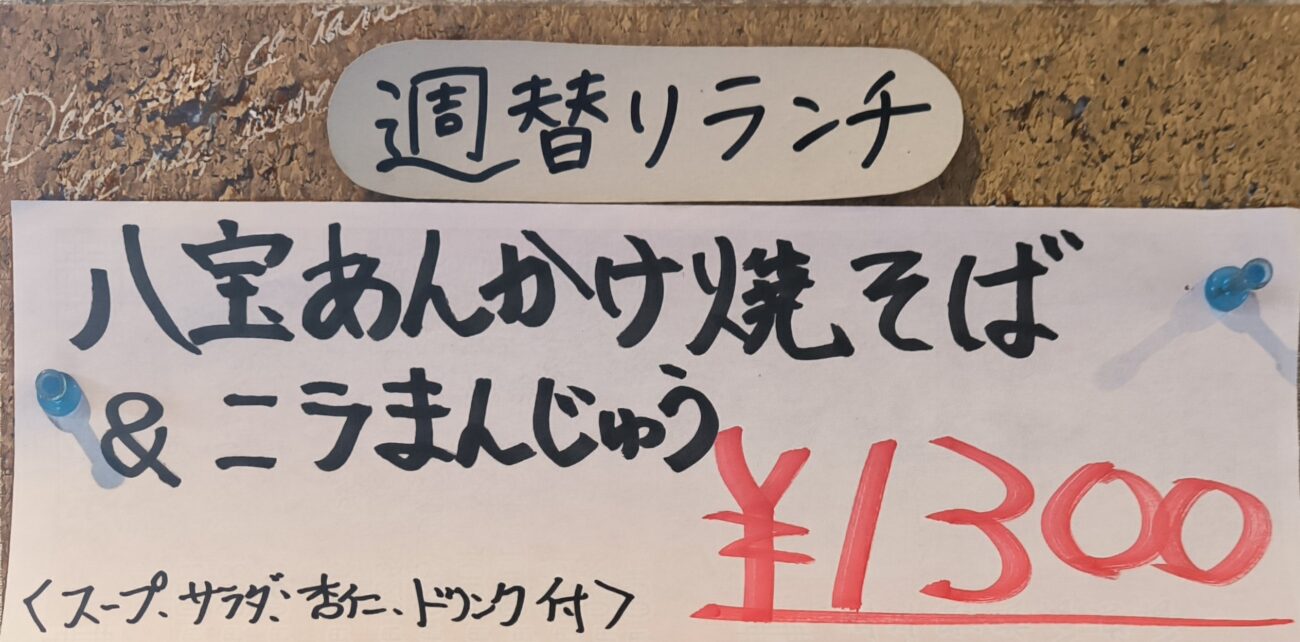 週替リランチ
八宝あんかけ焼そば
& ニラまんじゅう
¥1300
〈スープ、サラダ、杏仁、ドリンク付〉